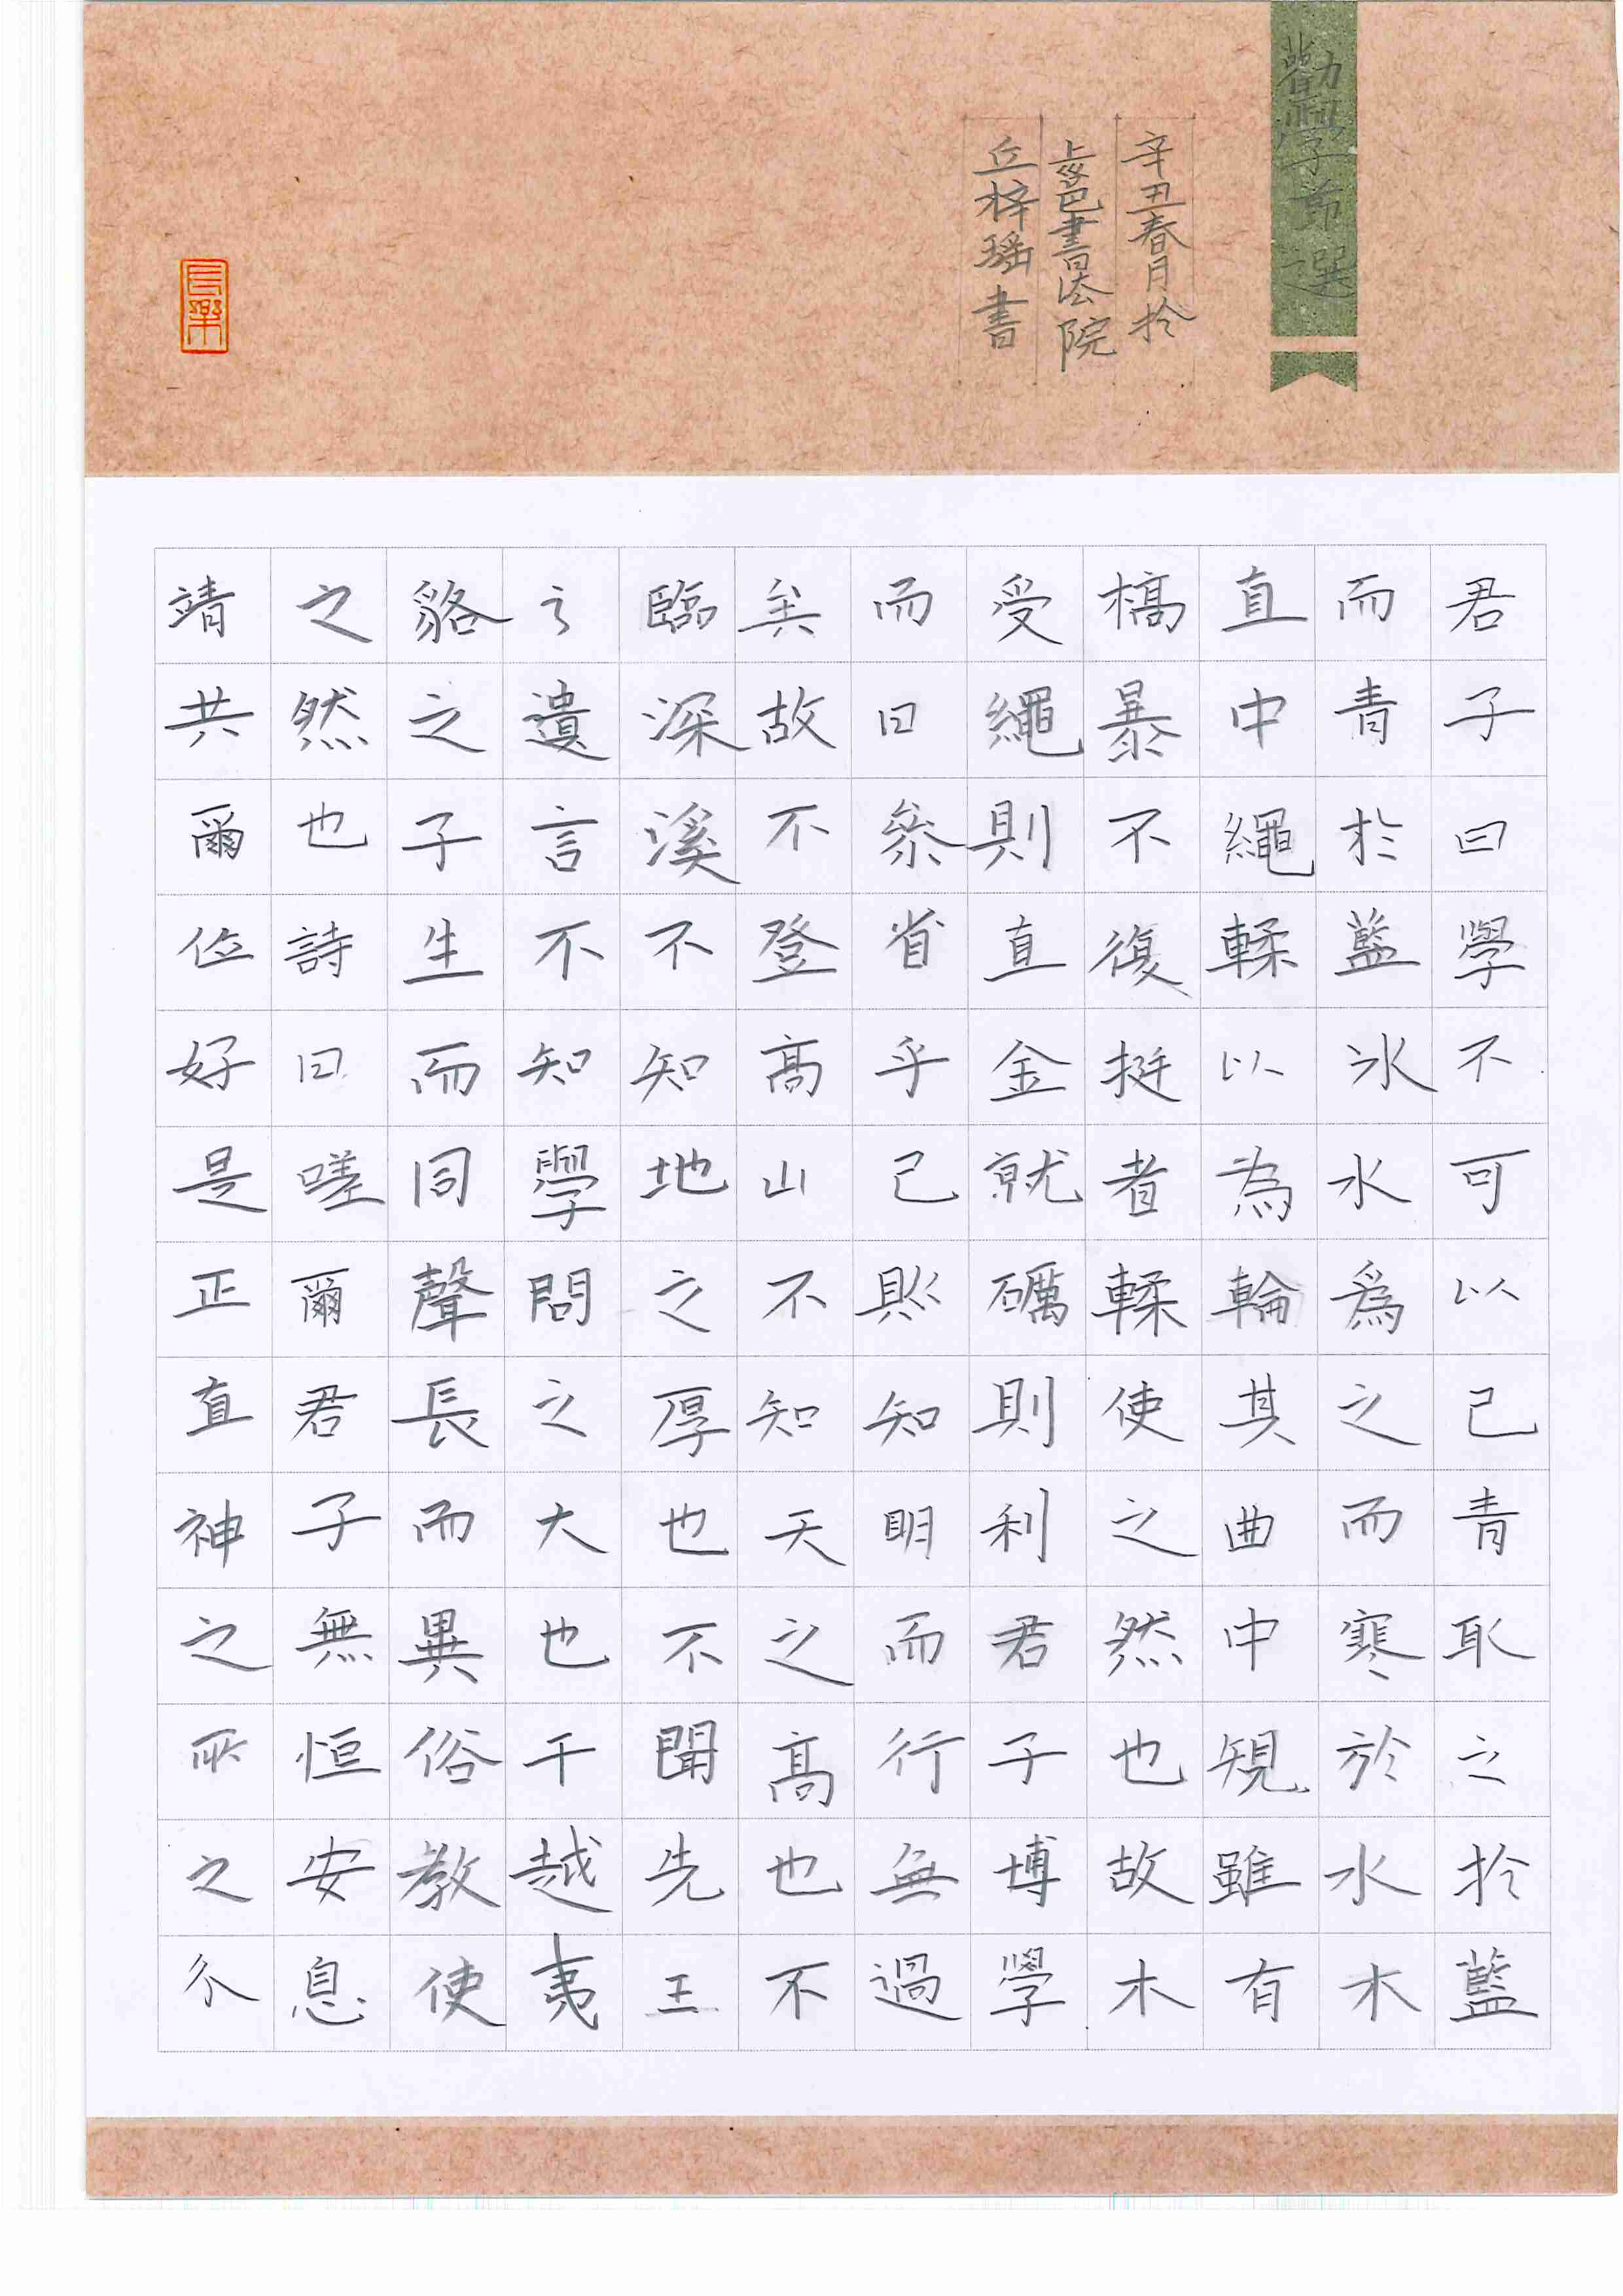 勸學節選
辛丑春月於
書法院
丘梓瑶書
君子曰學不可以已青取之於藍
而青於藍冰水爲之而寒於水木
直中繩輮以為輪其曲中規雖有
槁暴不復挺者輮使之然也故木
受繩則直金就礪則利君子博學
而日參省乎己則知明而行無過
矣故不登高山不知天之高也不
臨深溪不知地之厚也不聞先王
之遺言不知學問之大也干越夷
貉之子生而同聲長而異俗教使
之然也詩曰嗟爾君子無恒安息
靖共爾位好是正直神之所之介